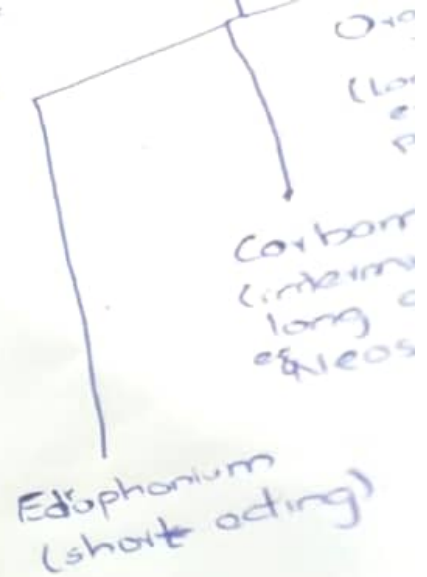 Org
(lo
e
p
Carbam
(interm
long
eg Neos
Edrophonium
(short acting)